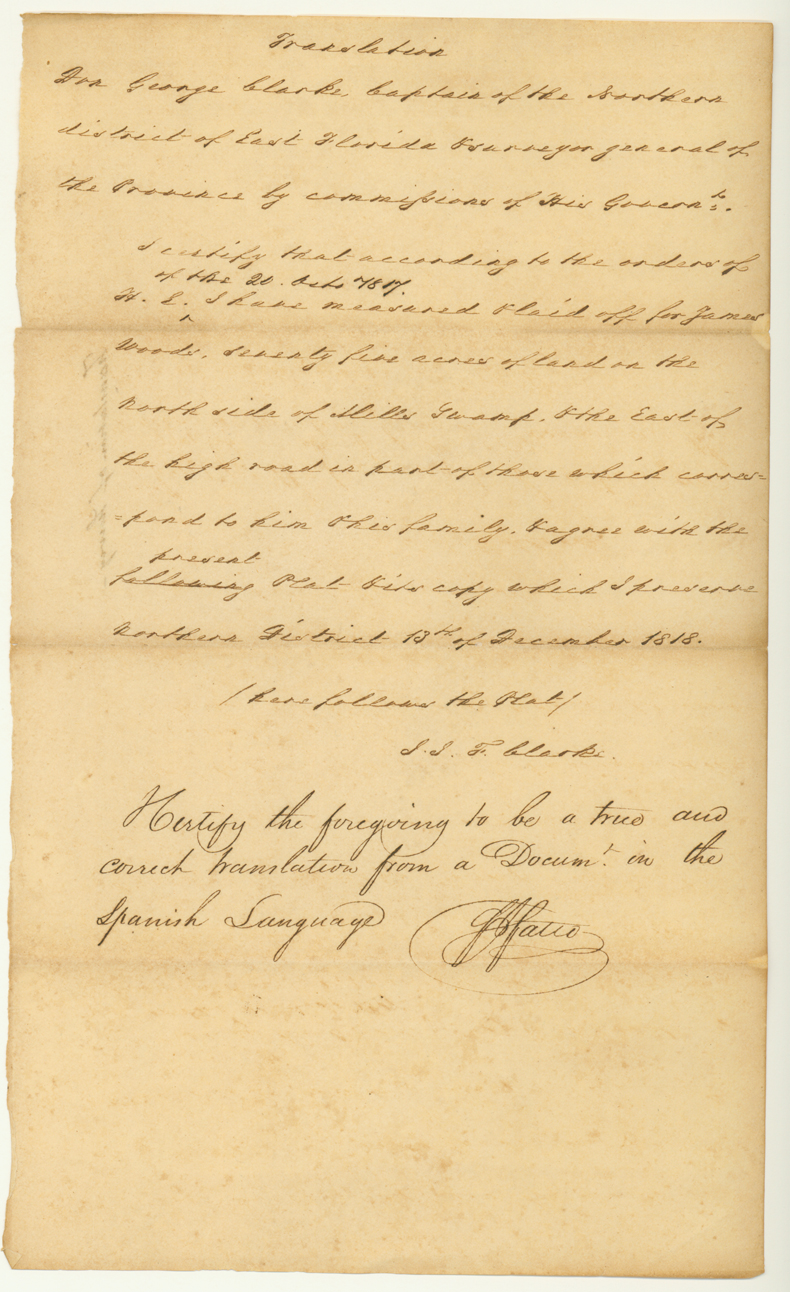 Translation
Don George Clarke, Captain of the Northern
district of East Florida & surveyor general of
the Province by commissions of His Governt.
I certify that according to the orders of
of the 20. Octo 1817.
H. E. I have measured & laid off for James
Woods, seventy five acres of land on the
North side of Mills Swamp, & the East of
the high road in part of those which corres=
=pond to him & his family, & agree with the
present
following Plat & its copy which I preserve
Northern District 13th of December 1818.
/ here follows the Plat /
F. Clarke.
I Certify the foregoing to be a true and
correct translation from a Documt. in the
Spanish Language